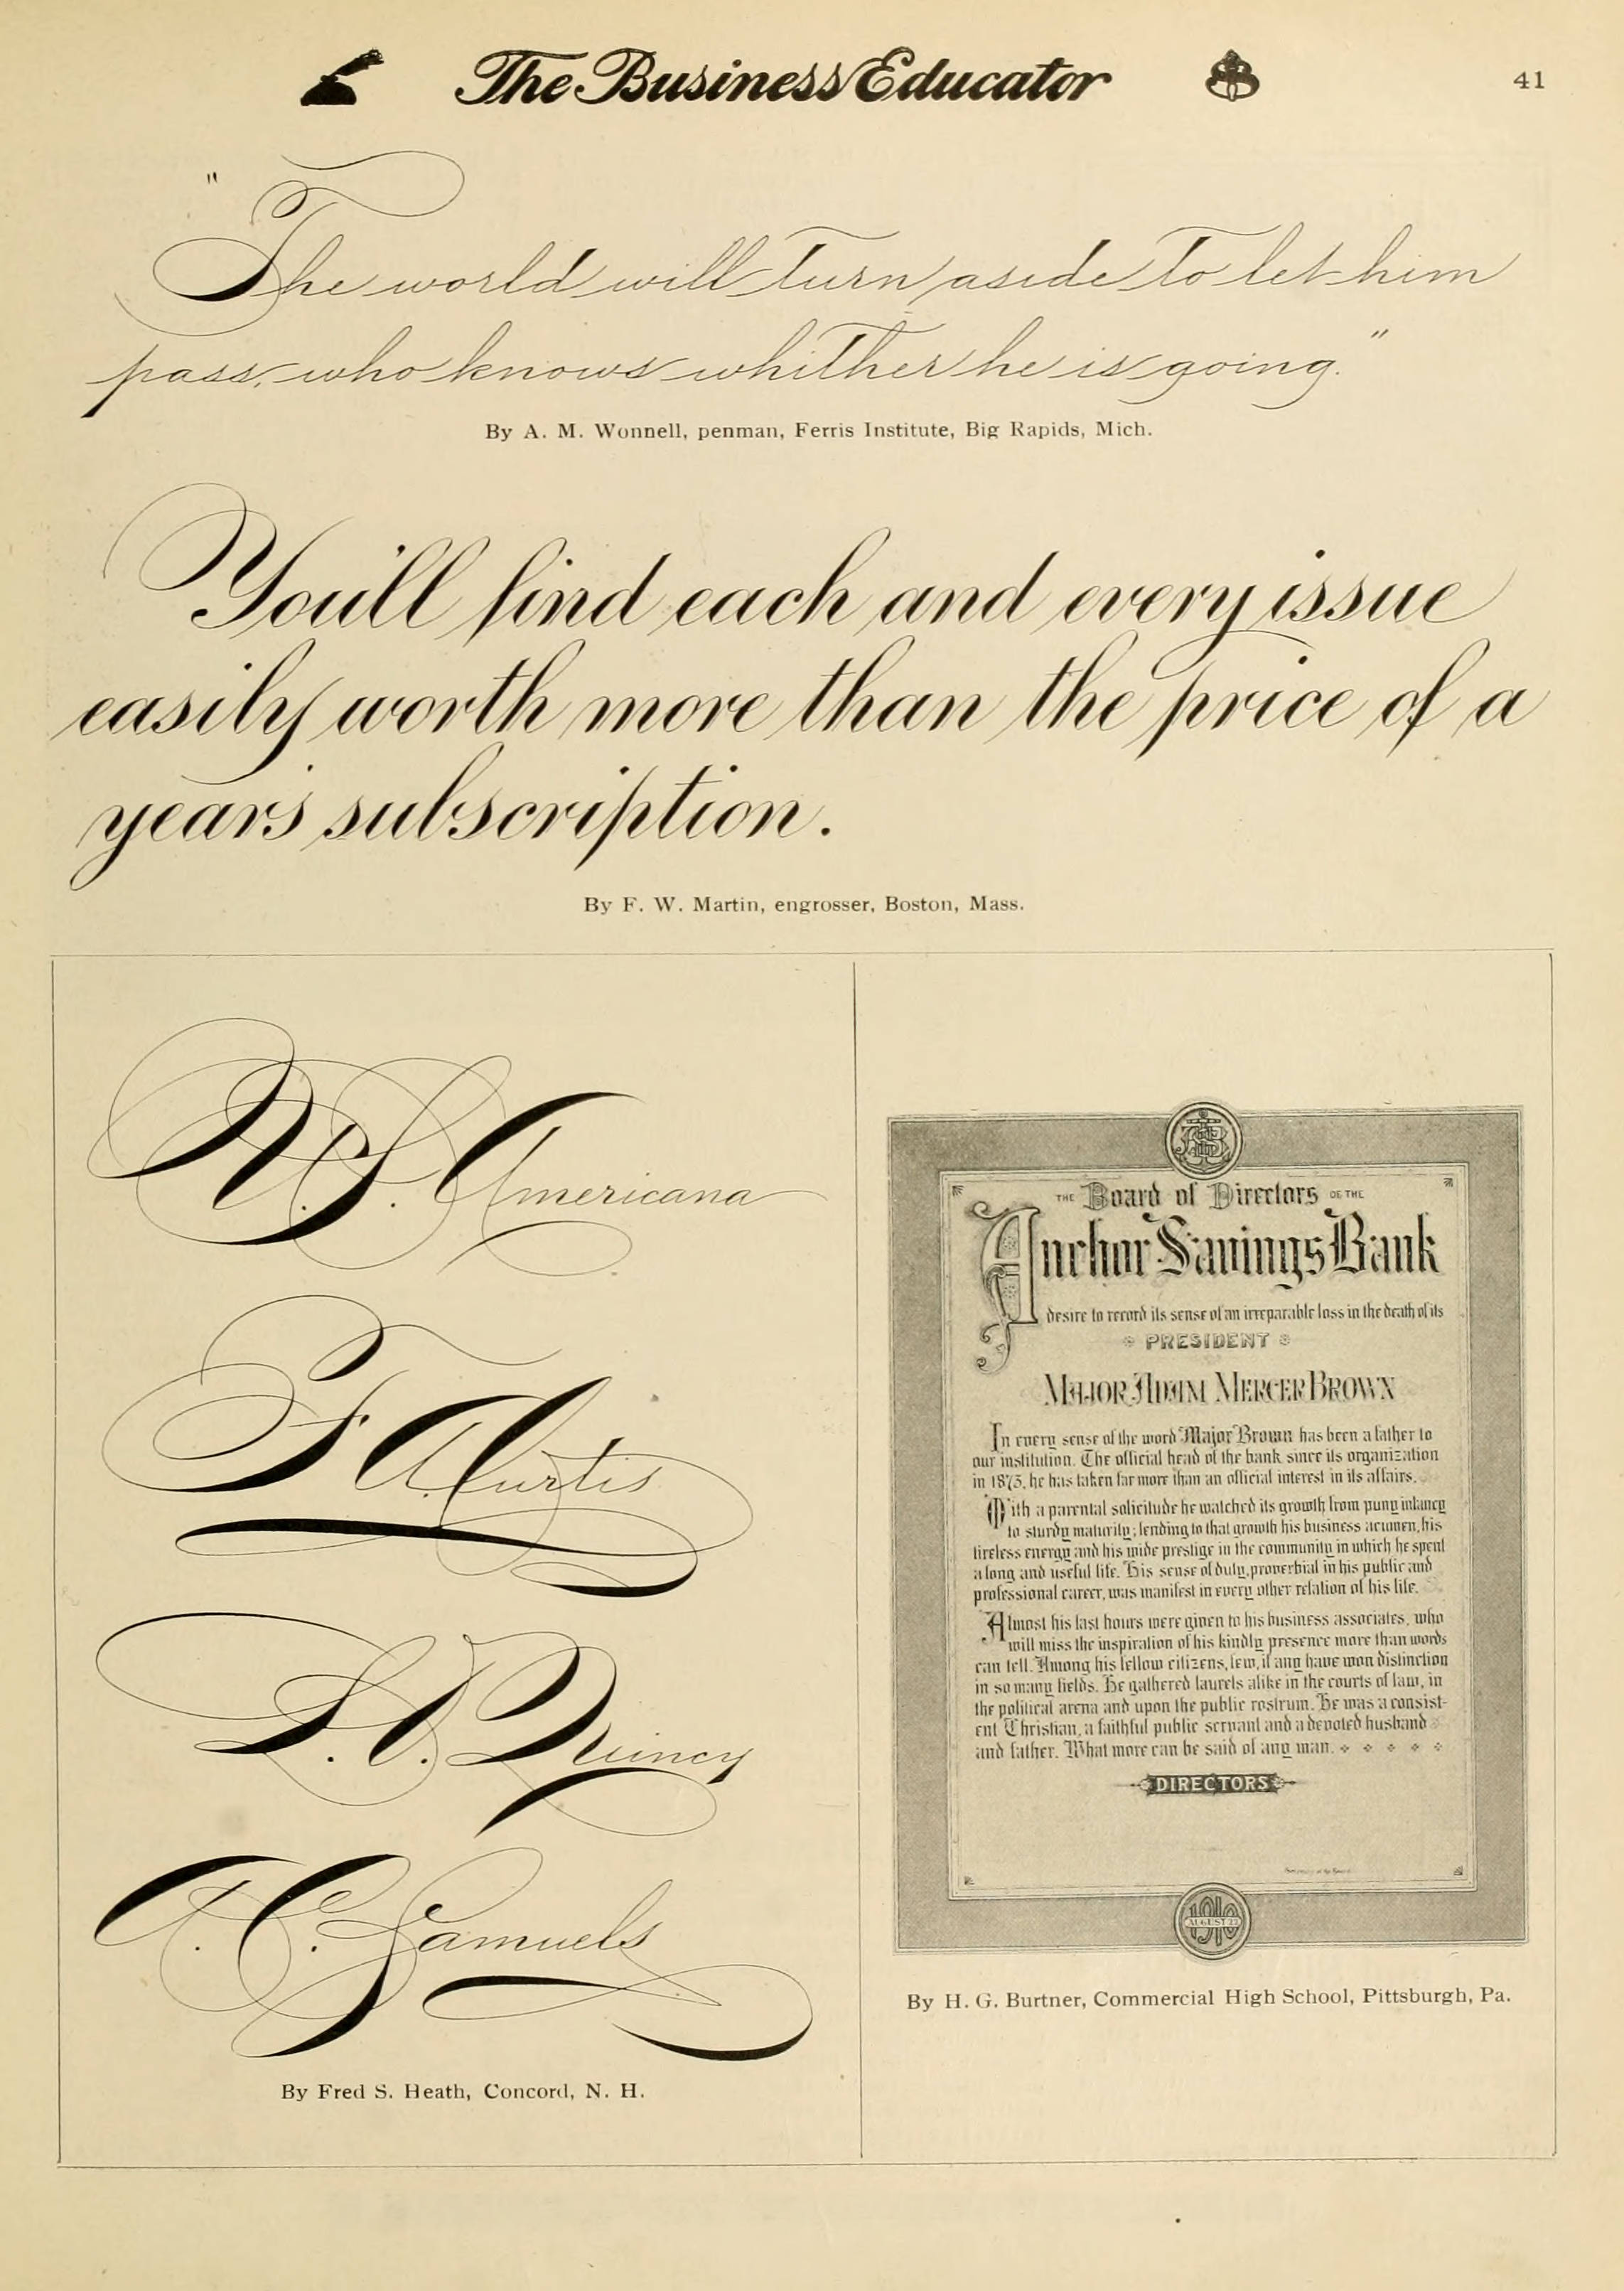 The Business Educator
41
"The world will turn aside to let him
pass, who knows whither he is going."
By A. M. Wonnell, penman, Ferris Institute, Big Rapids, Mich.
You'll find each and every issue
easily worth more than the price of a
year's subscription.
By F. W. Martin, engrosser, Boston, Mass.
W. S. Americana
F. A. Curtis
L. O. Quincy
A. C. Samuels
By Fred S. Heath, Concord, N. H.
ASB
THE Board of Directors OF THE
Anchor Savings Bank
desire to record its sense of an irreparable loss in the death of its
PRESIDENT
MAJOR ADAM MERCER BROWN
In every sense of the word Major Brown has been a father to
our institution. The official head of the bank since its organization
in 1873, he has taken far more than an official interest in its affairs.
With a parental solicitude he watched its growth from puny infancy
to sturdy maturity; lending to that growth his business acumen, his
tireless energy and his wide prestige in the community in which he spent
a long and useful life. His sense of duty, proverbial in his public and
professional career, was manifest in every other relation of his life.
Almost his last hours were given to his business associates, who
will miss the inspiration of his kindly presence more than words
can tell. Among his fellow citizens, few, if any have won distinction
in so many fields. He gathered laurels alike in the courts of law, in
the political arena and upon the public rostrum. He was a consist-
ent Christian, a faithful public servant and a devoted husband
and father. What more can be said of any man.
DIRECTORS
1910
AUGUST
By H. G. Burtner, Commercial High School, Pittsburgh, Pa.